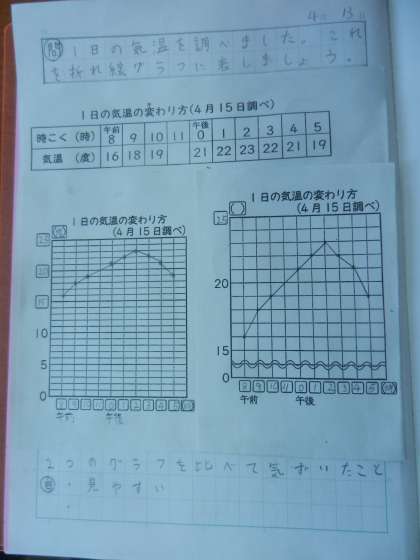 4 13
問 1日の気温を調べました。これ
を折れ線グラフに表しましょう。
1日の気温の変わり方(4月15日調べ)
時こく(時) 午前 8 9 10 11 午後 0 1 2 3 4 5
気温(度) 16 18 19 21 22 23 22 21 19
1日の気温の変わり方
(4月15日調べ)
25
20
15
10
5
0
午前 午後
1日の気温の変わり方
(4月15日調べ)
25
20
15
0
8 9 10 11 0 1 2 3 4 5
午前 午後
2つのグラフを比べて気づいたこと
・見やすい
・